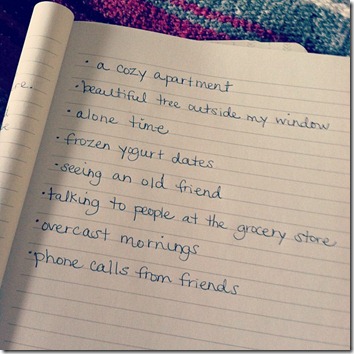 · a cozy apartment
· beautiful tree outside my window
· alone time
· frozen yogurt dates
· seeing an old friend
· talking to people at the grocery store
· overcast mornings
· phone calls from friends
re.